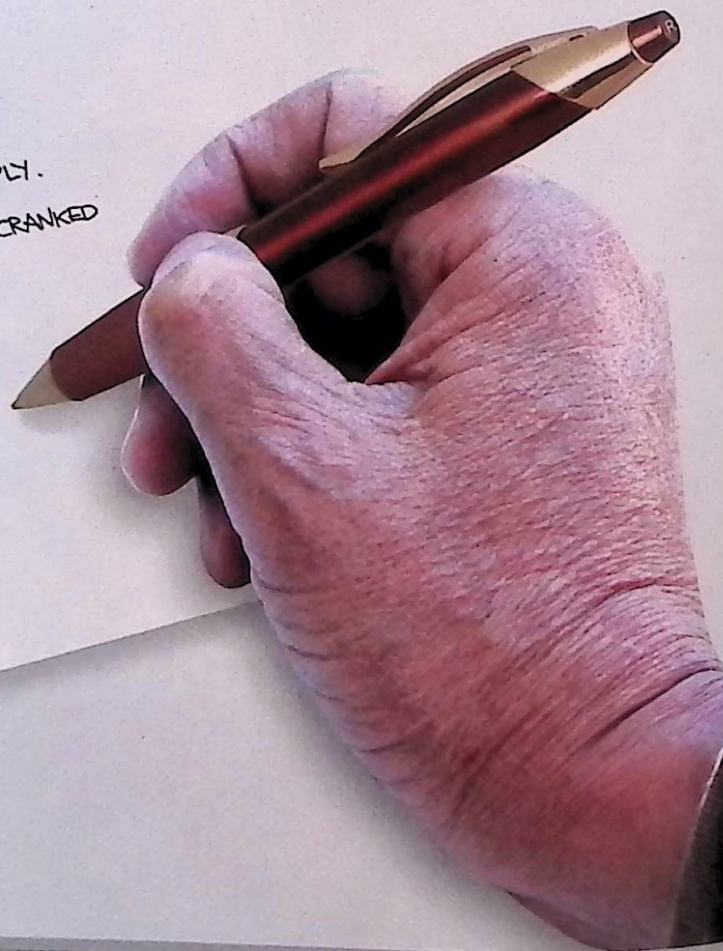 PLY.
CRANKED
R